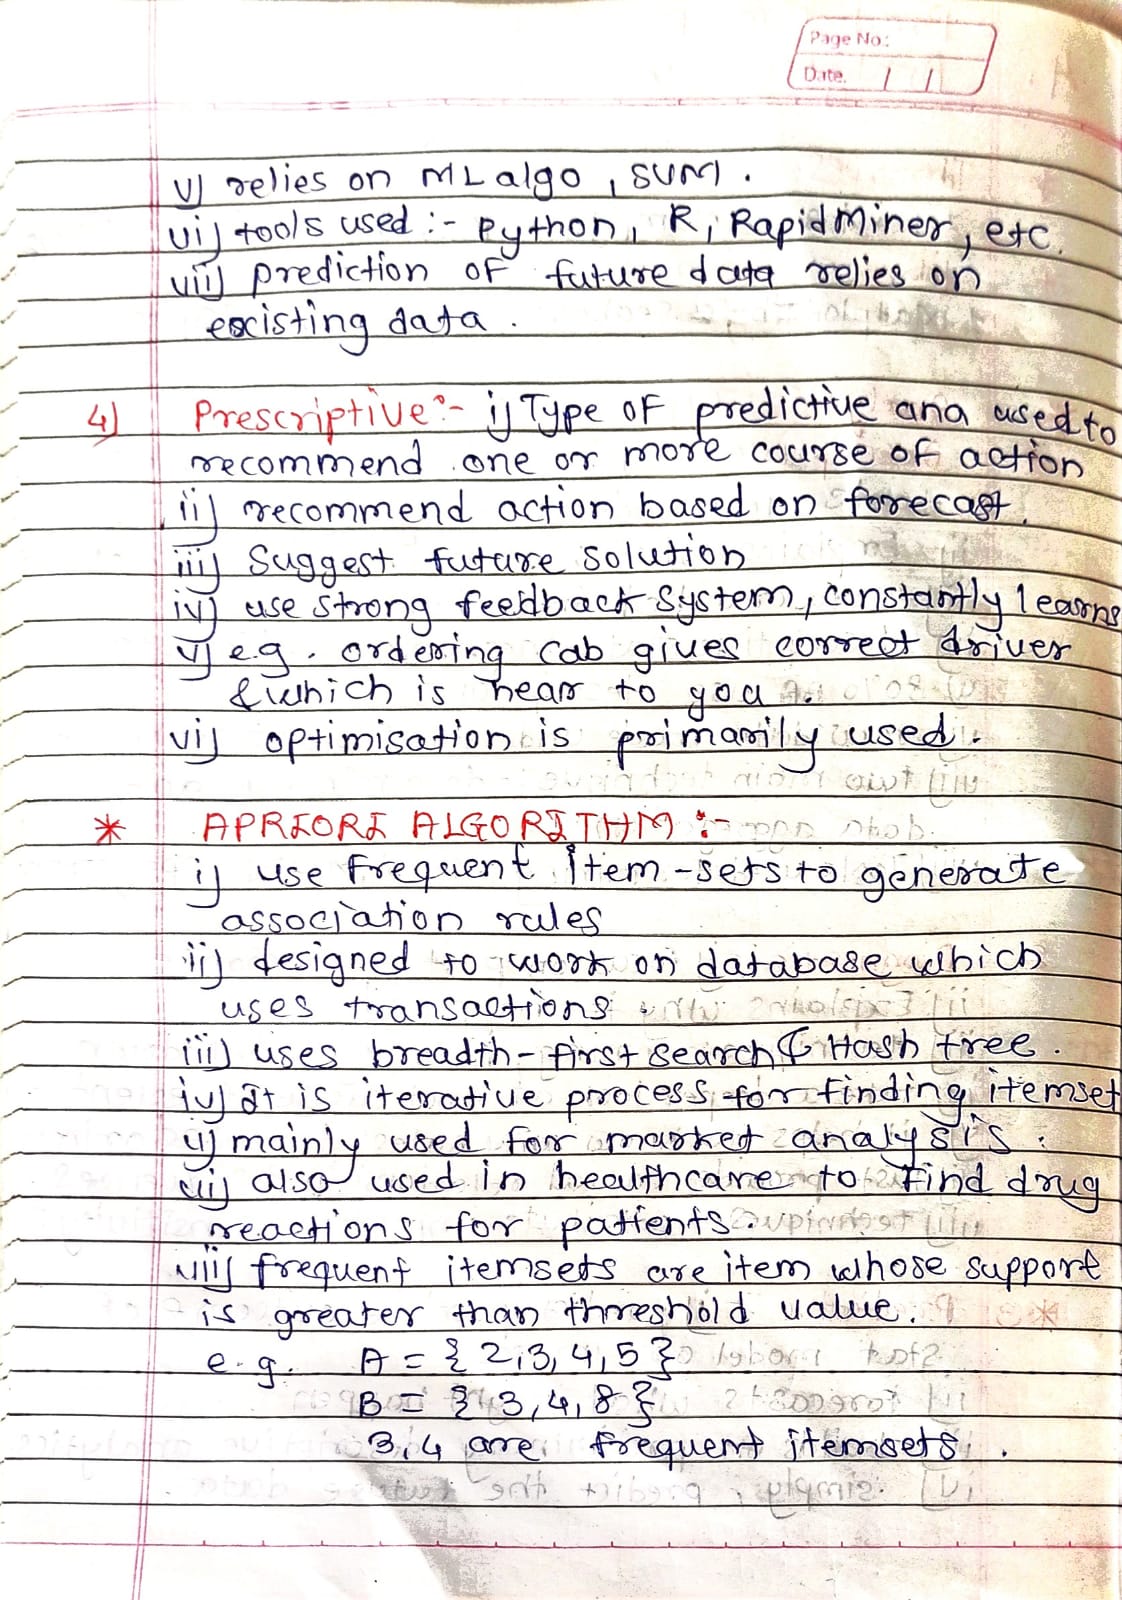 Page No:
Date. / /
v) relies on ML algo, SVM.
vi) tools used :- Python, R, RapidMiner, etc.
vii) prediction of future data relies on
existing data.
4) Prescriptive:- i) Type of predictive ana used to
recommend one or more course of action
ii) recommend action based on forecast.
iii) Suggest future solution
iv) use strong feedback system, constantly learns
v) e.g. ordering cab gives correct driver
& which is near to you.
vi) optimisation is primarily used.
* APRIORI ALGORITHM :-
i) use frequent item-sets to generate
association rules
ii) designed to work on database which
uses transactions
iii) uses breadth-first search & Hash tree.
iv) It is iterative process for finding itemset
v) mainly used for market analysis.
vi) also used in healthcare to find drug
reactions for patients.
vii) frequent itemsets are item whose support
is greater than threshold value.
e.g. A = {2,3,4,5}
B = {3,4,8}
3,4 are frequent itemsets.